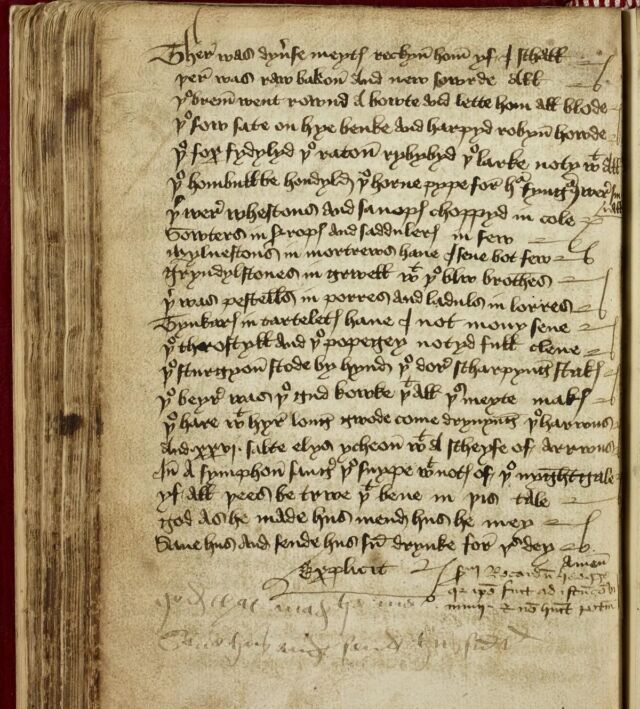 Ther was dyuse meytis rechyn hom yf I schall
yer was raw bakon and new sowrde all
ye brem went rownd a bowte and lette hom all blode
ye sow sate on hye benke and harpyd robyn howde
ye fox fydylyd ye raton rybybyd ye larke noty wt all
ye hombull be hondyld ye horne pype for hr fyngrs wer small
yr wer whestons and sanops choppyd in cole
Sowters in sirops and saddulers in sew
mylnestons in mortrews haue I sene bot few
gryndylstones in grwell wt ye blw brothes
yr was pestells in porres and laduls in lorres
Tynkars in tartelets haue I not mony sene
ye throstyll and ye popegey notyd full clene
ye sturgyon stode by hynd ye dor scharpyng staks
ye beyr was ye gud kowke yt all ys meyte maks
ye hare wt hyr long gwode come dryuyng ye harwus
and xxvi salte elys ycheon wt a scheyfe of arrwus
In a symphon sang ye snype wt nots of ye nyghtgale
yf all yees be trwe yt bene in yis tale
god as he made hus mend hus he mey
Saue hus and sende hus su drynke for ys dey
Amen
Explicit